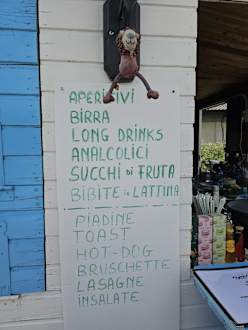 APERITIVI
BIRRA
LONG DRINKS
ANALCOLICI
SUCCHI di FRUTA
BIBITE in LATTINA
PIADINE
TOAST
HOT-DOG
BRUSCHETTE
LASAGNE
INSALATE